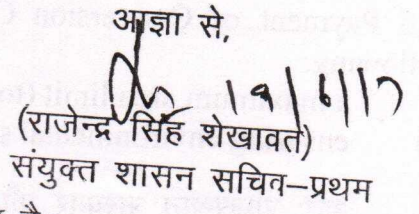 आज्ञा से,
(राजेन्द्र सिंह शेखावत)
संयुक्त शासन सचिव–प्रथम
है